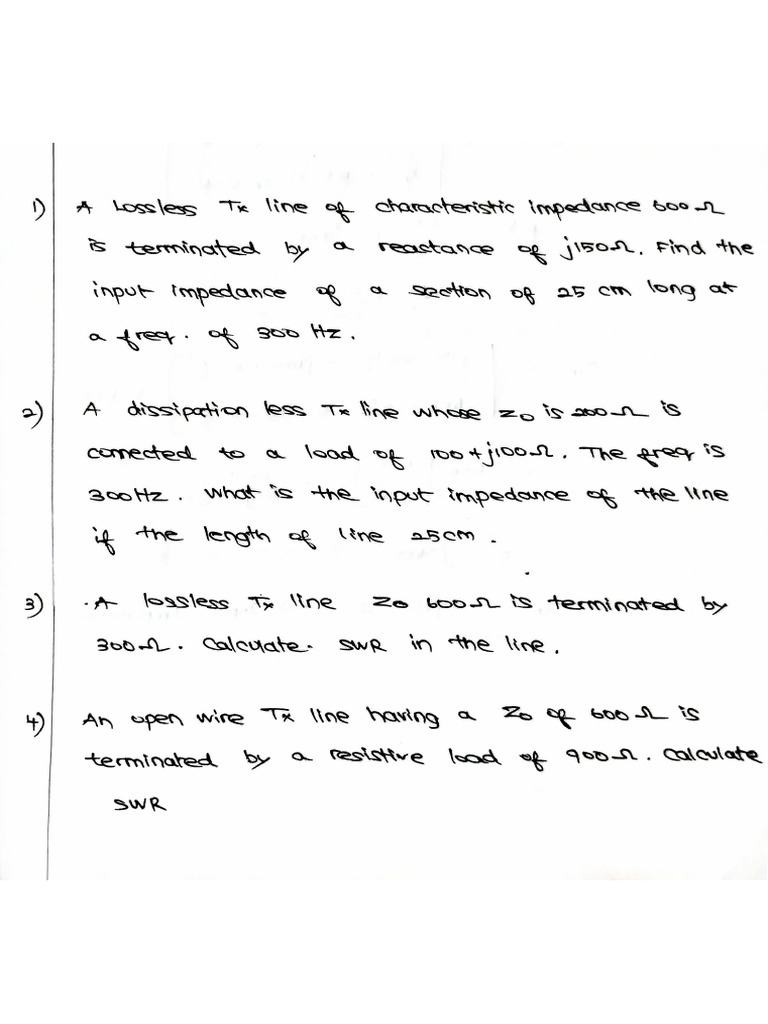 1) A Lossless Tx line of characteristic impedance 600Ω
is terminated by a reactance of j150Ω. Find the
input impedance of a section of 25 cm long at
a freq. of 300 Hz.
2) A dissipation less Tx line whose Z0 is 200Ω is
connected to a load of 100+j100Ω. The freq is
300Hz. What is the input impedance of the line
if the length of line 25cm.
3) A lossless Tx line Z0 600Ω is terminated by
300Ω. Calculate. SWR in the line.
4) An open wire Tx line having a Z0 of 600Ω is
terminated by a resistive load of 900Ω. Calculate
SWR